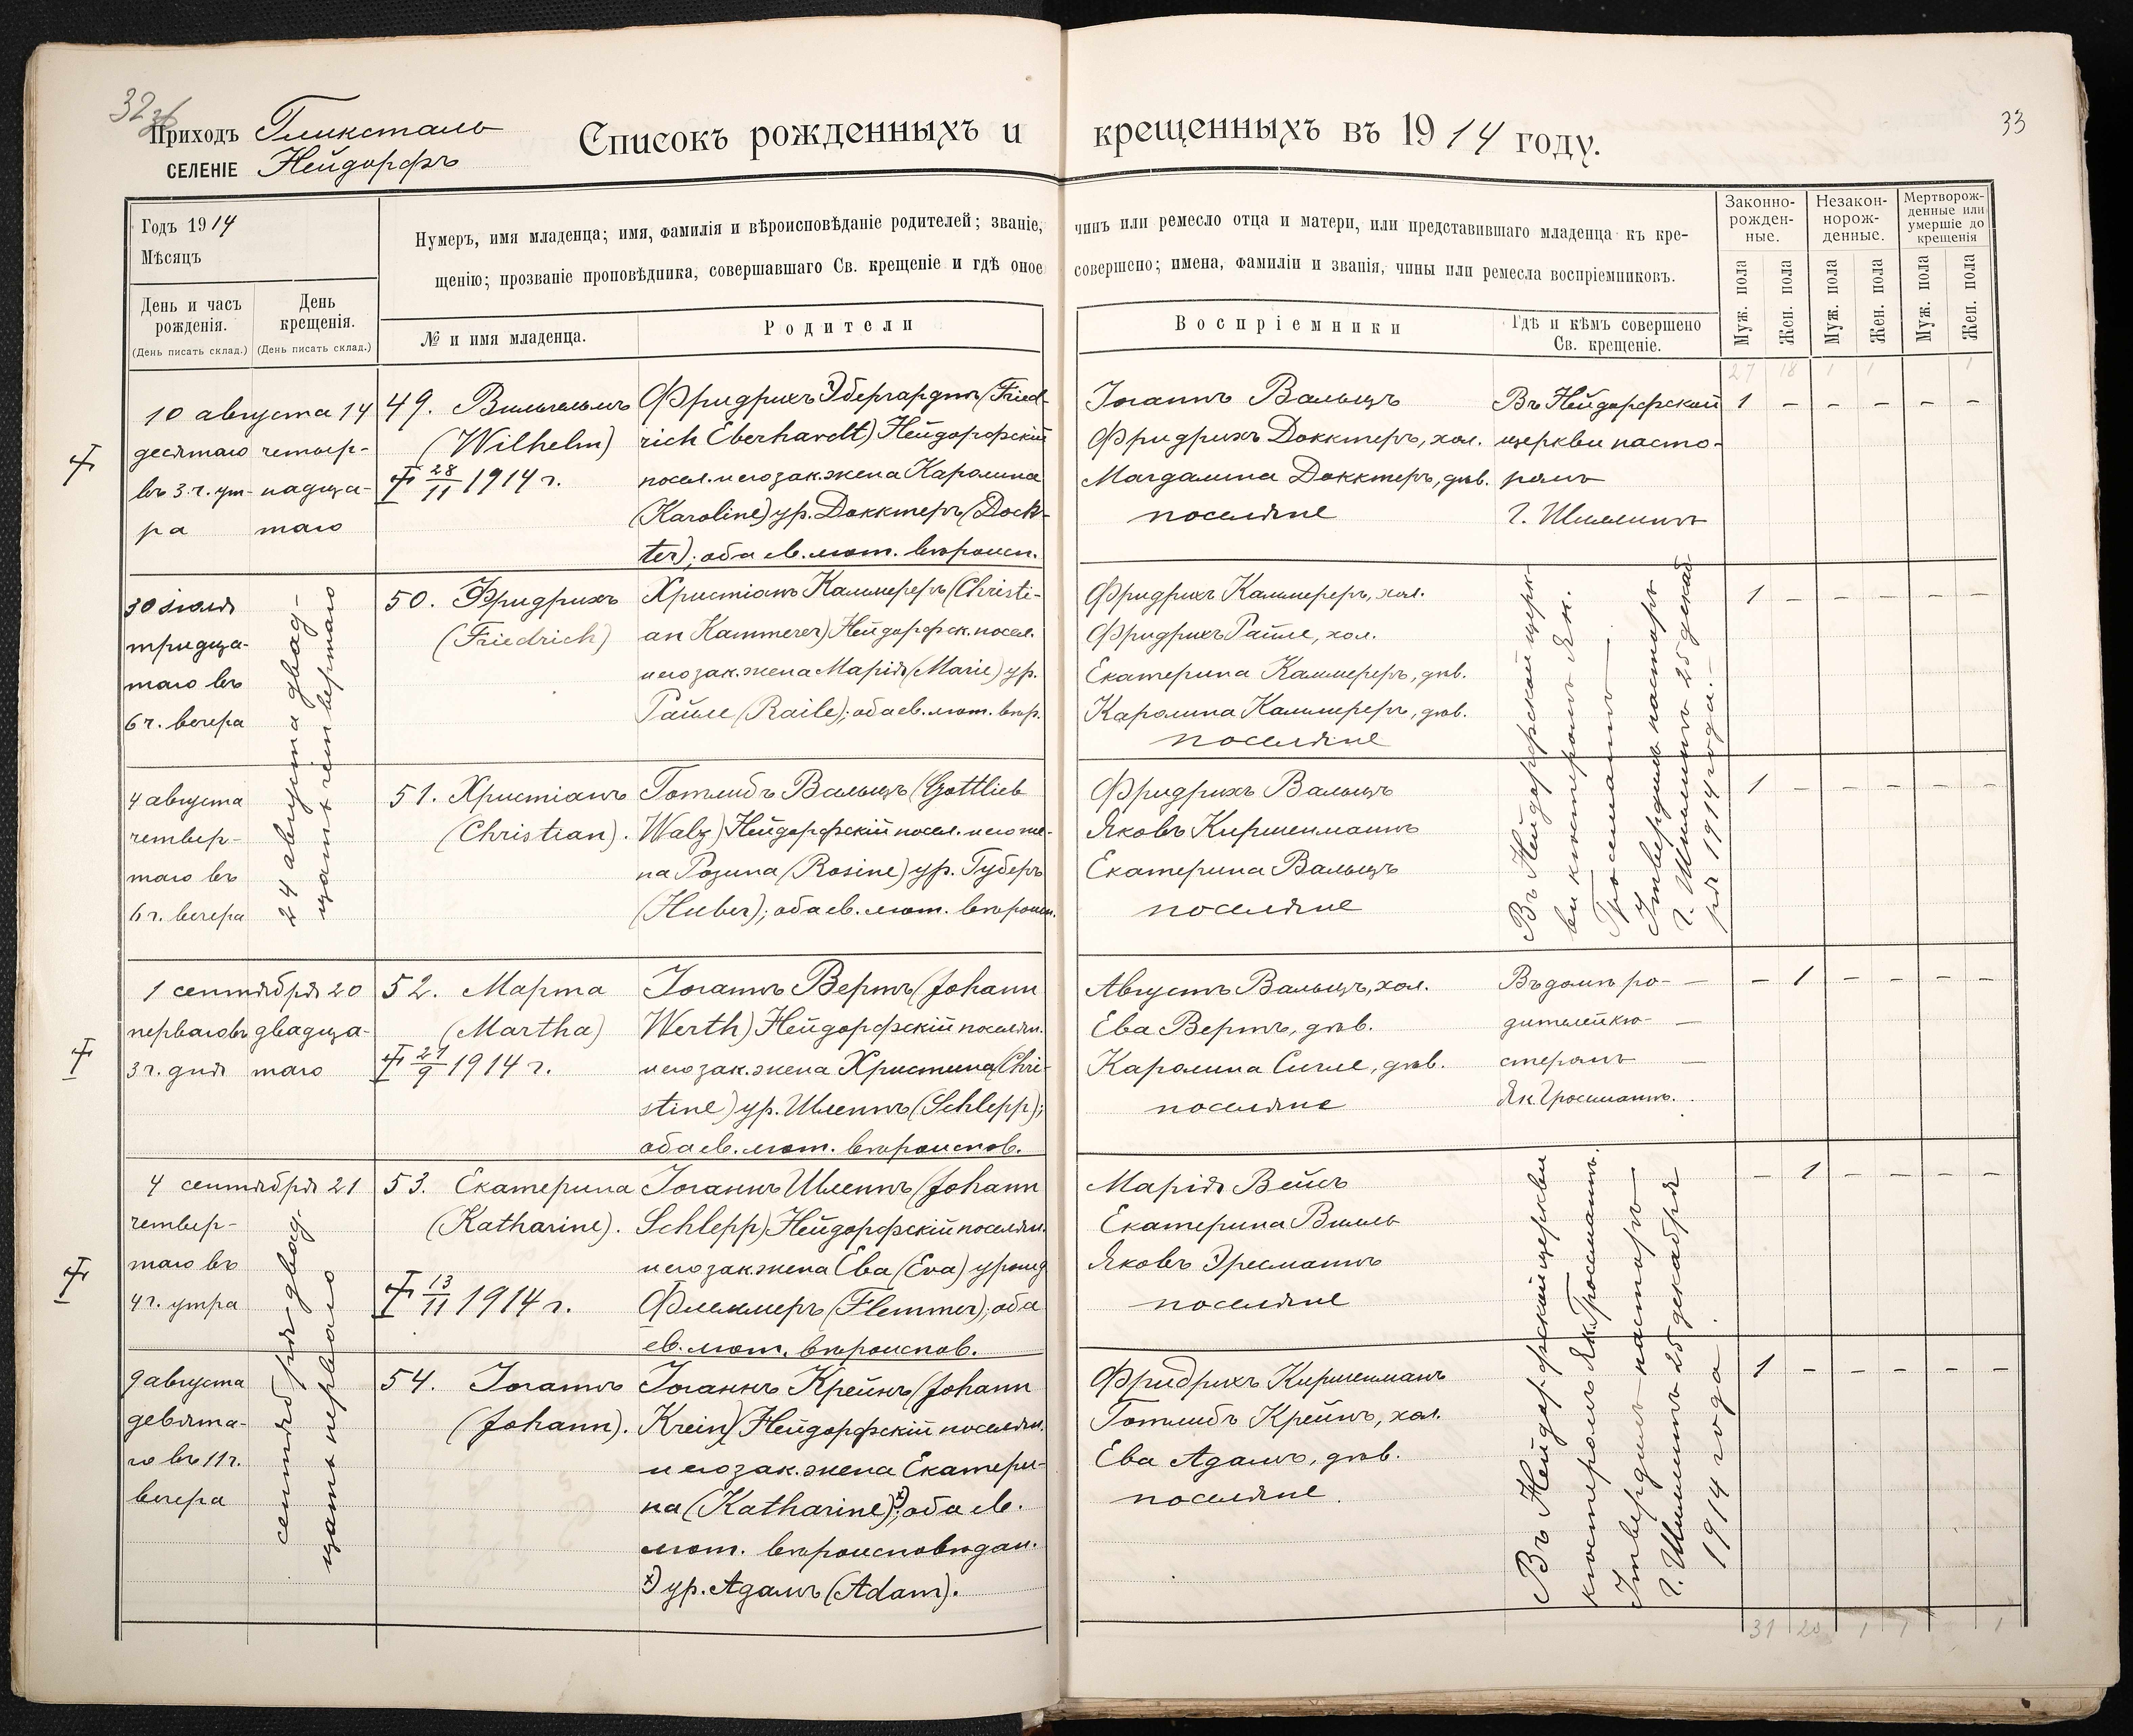 32
Приходъ Гликсталь
СЕЛЕНІЕ Нейдорфъ
Списокъ рожденныхъ и
крещенныхъ въ 1914 году.
33
Годъ 1914
Мѣсяцъ
День и часъ
рожденія.
(День писать склад.)
День
крещенія.
(День писать склад.)
Нумеръ, имя младенца; имя, фамилія и вѣроисповѣданіе родителей; званіе,
щенію; прозваніе проповѣдника, совершавшаго Св. крещеніе и гдѣ оное
№ и имя младенца.
Родители
чинъ или ремесло отца и матери, или представившаго младенца къ кре-
совершено; имена, фамиліи и званія, чины или ремесла воспріемниковъ.
Воспріемники
Гдѣ и кѣмъ совершено
Св. крещеніе.
Законно-
рожден-
ные.
Незакон-
норож-
денные.
Мертворож-
денные или
умершіе до
крещенія
Муж. пола
Жен. пола
Муж. пола
Жен. пола
Муж. пола
Жен. пола
27 18 1 1 1
10 августа 14
десятаго четыр-
въ 3 ч. ут- надца-
ра таго
49. Вильгельмъ
(Wilhelm)
28/11 1914 г.
Фридрихъ Эбергардтъ (Fried-
rich Eberhardt) Нейдорфскій
посел. и его зак. жена Каролина
(Karoline) ур. Доктеръ (Dock-
ter); оба ев. лют. вѣроисп.
Іоганнъ Вальцъ
Фридрихъ Доктеръ, хол.
Магдалина Доктеръ, дѣв.
поселяне
Въ Нейдорфской
церкви пасто-
ромъ
Г. Шиллингъ
1 – – – – –
30 іюля
тридца-
таго въ
6 ч. вечера
24 августа двад-
цать четвертаго
50. Фридрихъ
(Friedrich)
Христіанъ Каммереръ (Christi-
an Kammerer) Нейдорфск. посел.
и его зак. жена Марія (Marie) ур.
Райле (Raile); оба ев. лют. вѣр.
Фридрихъ Каммереръ, хол.
Фридрихъ Райле, хол.
Екатерина Каммереръ, дѣв.
Каролина Каммереръ, дѣв.
поселяне
Въ Нейдорфской церк-
ви кистеромъ Як.
Гроссманнъ
Утвердилъ пасторъ
Г. Шиллингъ 25 декаб-
ря 1914 года.
1 – – – – –
4 августа
четвер-
таго въ
6 ч. вечера
51. Христіанъ
(Christian).
Готлибъ Вальцъ (Gottlieb
Walz) Нейдорфскій посел. и его же-
на Розина (Rosine) ур. Губеръ
(Huber); оба ев. лют. вѣроисп.
Фридрихъ Вальцъ
Яковъ Киршенманнъ
Екатерина Вальцъ
поселяне
1 – – – – –
1 сентября 20
перваго въ двадца-
3 ч. дня таго
52. Марта
(Martha)
27/9 1914 г.
Іоганнъ Вертъ (Johann
Werth) Нейдорфскій поселян.
и его зак. жена Христина (Chri-
stine) ур. Шлеппъ (Schlepp);
оба ев. лют. вѣроиспов.
Августъ Вальцъ, хол.
Ева Вертъ, дѣв.
Каролина Сигле, дѣв.
поселяне
Въ домѣ ро-
дителей кю-
стеромъ
Як. Гроссманнъ.
– 1 – – – –
4 сентября 21
четвер-
таго въ
4 ч. утра
53. Екатерина
(Katharine).
13/11 1914 г.
Іоганнъ Шлеппъ (Johann
Schlepp) Нейдорфскій поселян.
и его зак. жена Ева (Eva) урожд
Флеммеръ (Flemmer); оба
ев. лют. вѣроиспов.
Марія Вейсъ
Екатерина Вилль
Яковъ Эресманнъ
поселяне
Въ Нейдорфской церкви
кюстеромъ Як. Гроссманнъ.
Утвердилъ пасторъ
Г. Шиллингъ 25 декабря
1914 года.
– 1 – – – –
9 августа
девята-
го въ 11 ч.
вечера
сентября двад-
цать перваго
54. Іоганнъ
(Johann).
Іоганнъ Крейнъ (Johann
Krein) Нейдорфскій поселян.
и его зак. жена Екатери-
на (Katharine) х); оба ев.
лют. вѣроисповѣдан.
х) ур. Адамъ (Adam).
Фридрихъ Киршенманъ
Готлибъ Крейнъ, хол.
Ева Адамъ, дѣв.
поселяне.
1 – – – – –
31 20 1 1 1